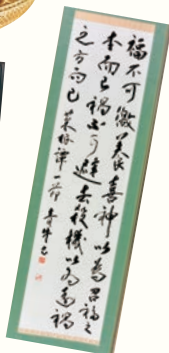 福不可徼養喜神以為召福之
本而已禍不可避去殺機以為遠禍
之方而已 菜根譚一節